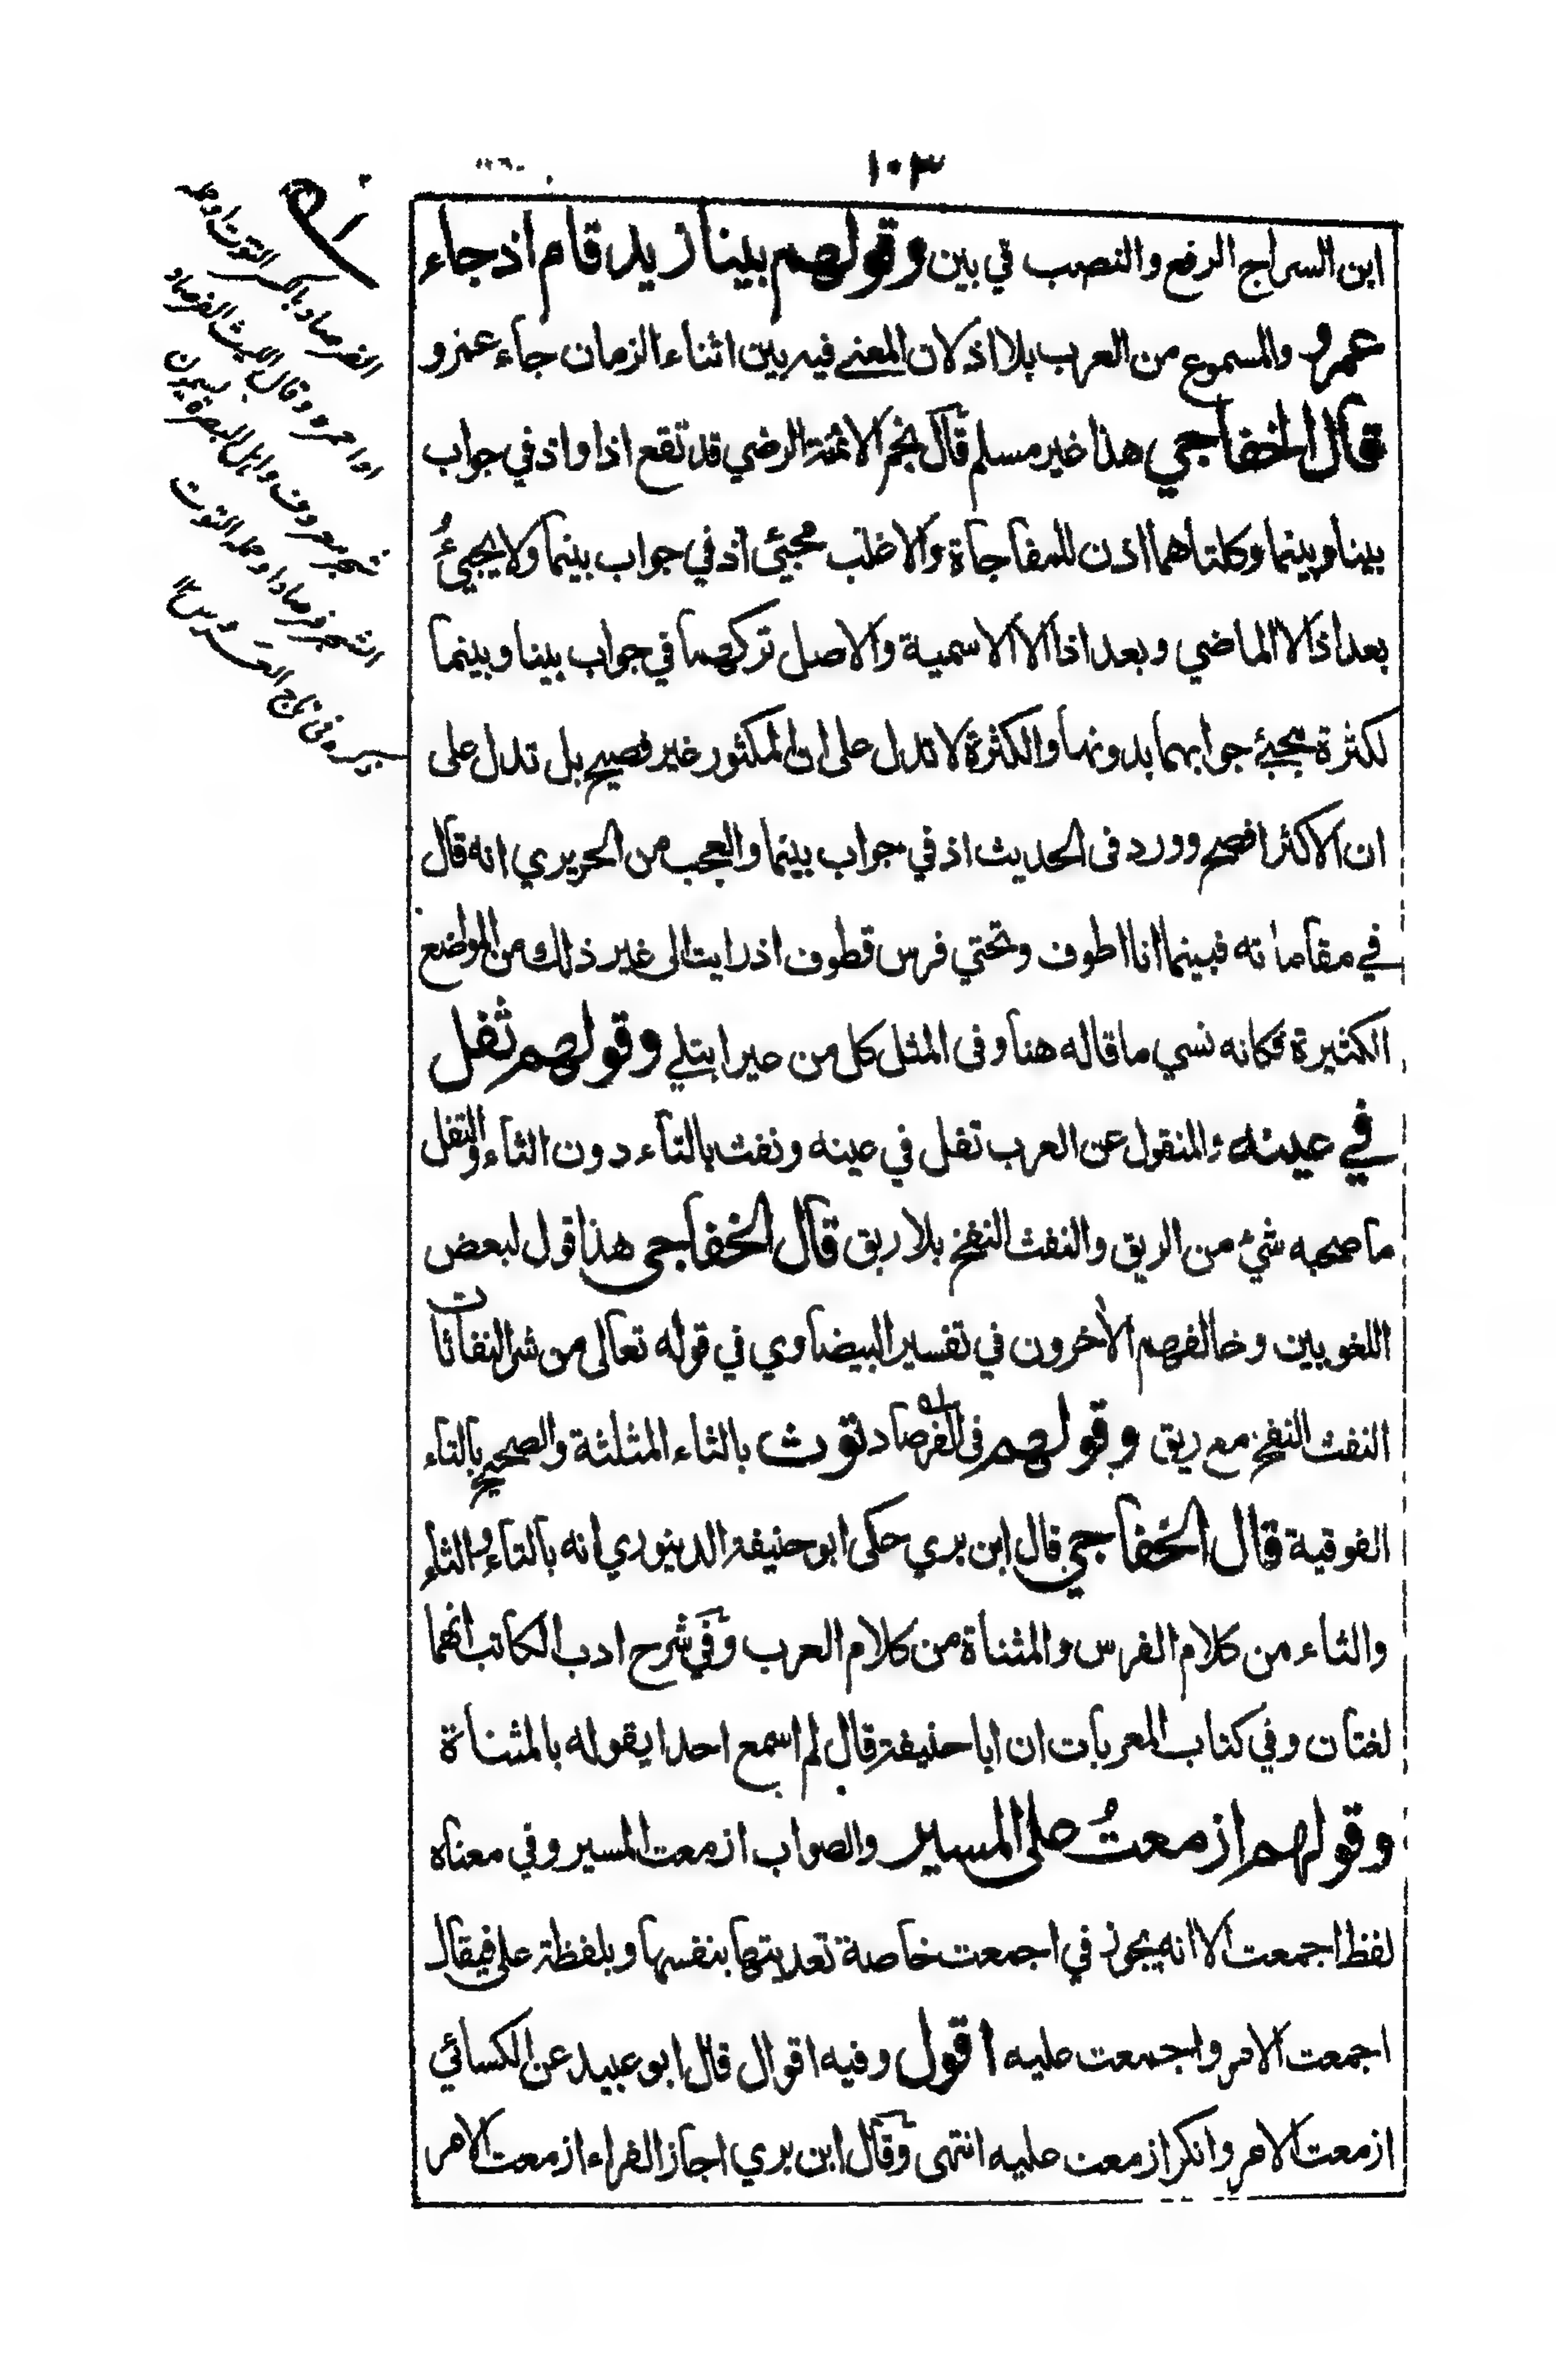 ١٠٣
ابن السراج الرفع والنصب في بين وقولهم بينا زيد قام اذ جاء
عمرو والمسموع من العرب بلا اذ لان المعنى فيه بين اثناء الزمان جاء عمرو
قال الخفاجي هذا غير مسلم قال نجم الائمة الرضي قد تقع اذا واذ في جواب
بينا وبينما وكلتاهما اذن للمفاجاة والاغلب مجيئ اذ في جواب بينما ولا يجيئ
بعد اذ الا الماضي وبعد اذا الا الاسمية والاصل تركهما في جواب بينا وبينما
لكثرة مجيئ جوابهما بدونهما والكثرة لا تدل على ان المكثور غير فصيح بل تدل على
ان الاكثر افصح وورد فى الحديث اذ في جواب بينما والعجب من الحريري انه قال
في مقاماته فبينما انا اطوف وتحتي فرس قطوف اذ رايت الى غير ذلك من المواضع
الكثيرة فكانه نسي ما قاله هنا وفى المثل كل من عير ابتلي وقولهم ثفل
في عينه والمنقول عن العرب تفل في عينه ونفث بالتاء دون الثاء والتفل
ما صحبه شيئ من الريق والنفث النفخ بلا ريق قال الخفاجى هذا قول لبعض
اللغويين وخالفهم الأخرون في تفسير البيضاوي في قوله تعالى من شر النفاثات
النفث النفخ مع ريق وقولهم فى الفرصاد توث بالثاء المثلثة والصحيح بالتاء
الفوقية قال الخفاجي قال ابن بري حكى ابو حنيفة الدينوري انه بالتاء والثاء
والثاء من كلام الفرس والمثناة من كلام العرب وفي شرح ادب الكاتب انهما
لغتان وفي كتاب المعربات ان ابا حنيفة قال لم اسمع احدا يقوله بالمثناة
وقولهم ازمعتُ على المسير والصواب ازمعت المسير وفي معناه
لفظ اجمعت الا انه يجوز في اجمعت خاصة تعديتها بنفسها وبلفظة على فيقال
اجمعت الامر واجمعت عليه اقول وفيه اقوال قال ابو عبيد عن الكسائي
ازمعت الامر وانكر ازمعت عليه انتهى وقال ابن بري اجاز الفراء ازمعت الامر
الفرصاد بالكسر التوت او حمله
او احمره وقال الليث الفرصاد
شجر معروف واهل البصرة يسمون
الشجر فرصادا وحمله التوت
في تاج العروس ١٢